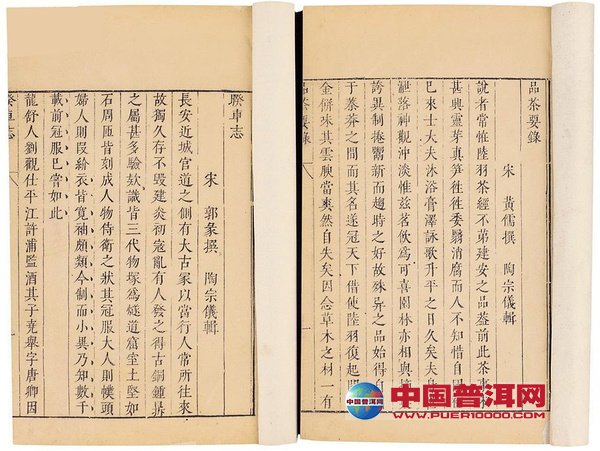 品茶要錄
宋 黃儒撰 陶宗儀輯
說者常惟陸羽茶經不第建安之品葢前此茶事
甚興靈芽真笋徃徃委翳消腐而人不知惜自國
巳來士大夫沐浴膏澤詠歌升平之日久矣夫身
泄落神觀沖淡惟兹茗飲爲可喜園林亦相與摘
誇異制捲鬻新而趨時之好故殊异之品始得自
于蓁莽之間而其名遂冠天下借使陸羽復起閱
金餅味其雲腴當爽然自失矣因念草木之材一有
品茶要錄
睽車志
宋 郭彖撰 陶宗儀輯
長安近城官道之側有大古冢以當行人常所徃來
故獨久存不毁建炎初寇亂有人發之得古銅鍾鼎
之屬甚多驗欵識皆三代物塚爲隧道窟室土堅如
石周匝皆刻成人物侍衛之狀其冠服大人則幞頭
婦人則叚紒衣皆寬袖頗類今制而小異乃知數千
載前冠服巳嘗如此
龍舒人劉觀仕平江許浦監酒其子堯舉字唐卿因
睽車志
中国普洱网
WWW.PUER10000.COM